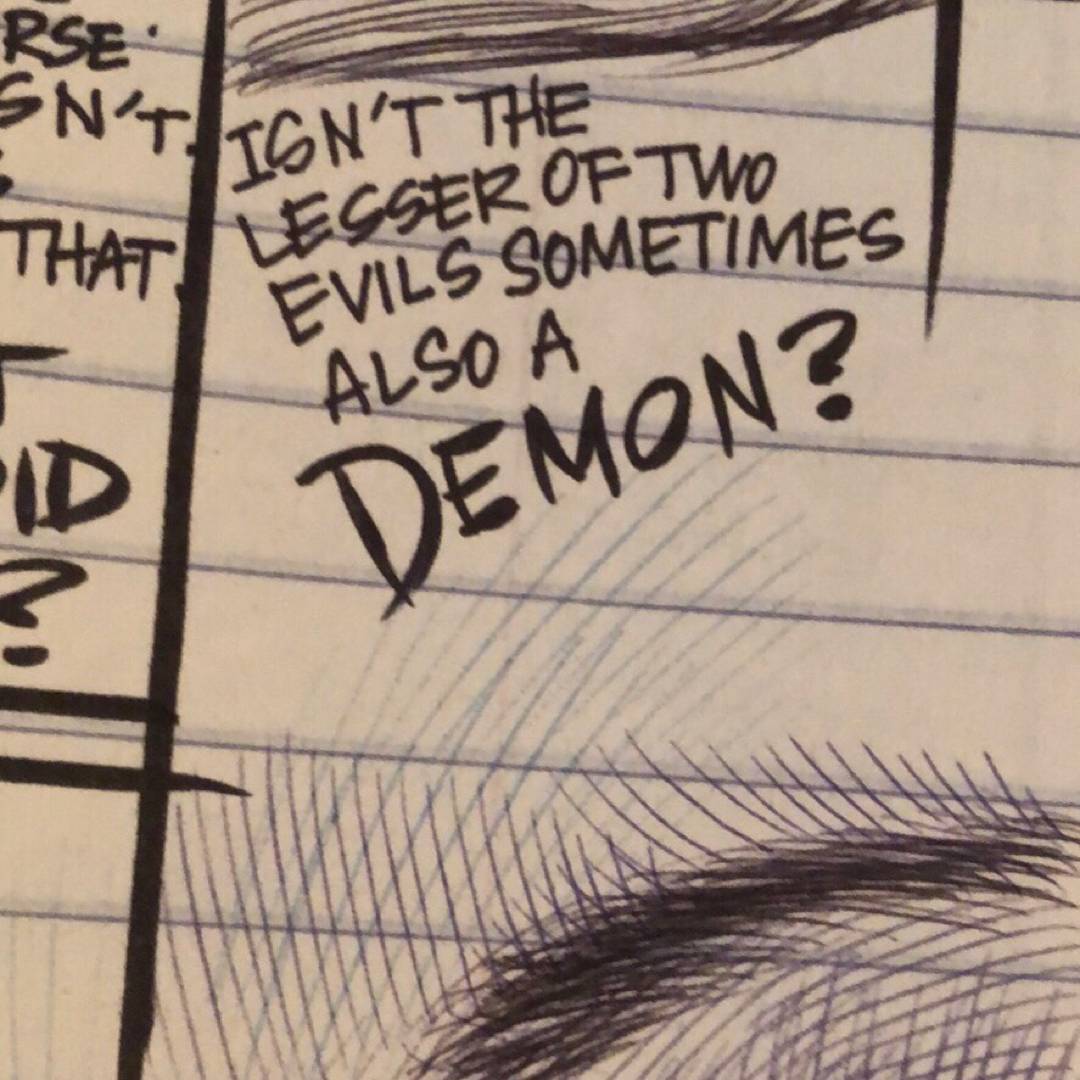 ISN'T.
THAT.
?
ISN'T THE
LESSER OF TWO
EVILS SOMETIMES
ALSO A
DEMON?